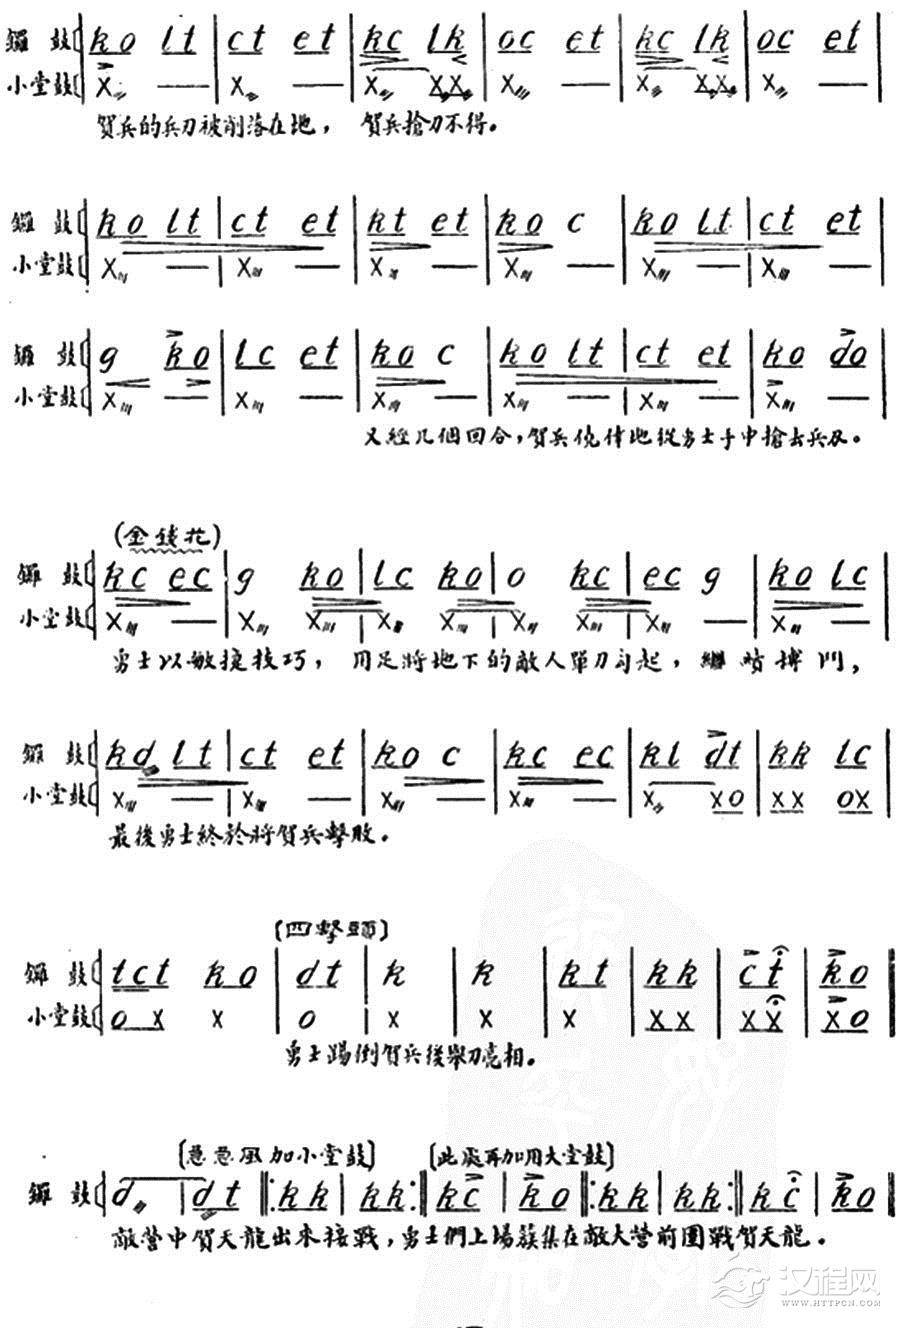 鑼鼓 ko lt | ct et | kc lk | oc et | kc lk | oc et |
小堂鼓 X — | X — | X XX | X — | X XX | X — |
賀兵的兵刃被削落在地， 賀兵搶刀不得。
鑼鼓 ko lt | ct et | kt et | ko c | ko lt | ct et |
小堂鼓 X — | X — | X — | X — | X — | X — |
鑼鼓 g ko | lc et | ko c | ko lt | ct et | ko do |
小堂鼓 X — | X — | X — | X — | X — | X — |
又經几個回合，賀兵僥倖地從勇士手中搶去兵刃。
(金錢花)
鑼鼓 kc ec | g ko | lc ko | o kc | ec g | ko lc |
小堂鼓 X — | X X | X X | X X | X — | X — |
勇士以敏捷技巧， 用足將地下的敵人單刀勾起， 繼續搏鬥，
鑼鼓 kd lt | ct et | ko c | kc ec | kl dt | kk lc |
小堂鼓 X — | X — | X — | X — | X XO | XX OX |
最後勇士終於將賀兵擊敗。
〔四擊頭〕
鑼鼓 tct ko | dt | k | k | kt | kk | ct | ko ‖
小堂鼓 O X X | O | X | X | X | XX | XX | XO ‖
勇士踢倒賀兵後舉刀亮相。
〔急急風加小堂鼓〕 〔此處再加用大堂鼓〕
鑼鼓 d | dt ‖: kk | kk :‖ kc | ko ‖: kk | kk :‖ kc | ko ‖
敵營中賀天龍出來接戰，勇士們上場簇集在敵大營前圍戰賀天龍。
汉程网
WWW.HTTPCN.COM